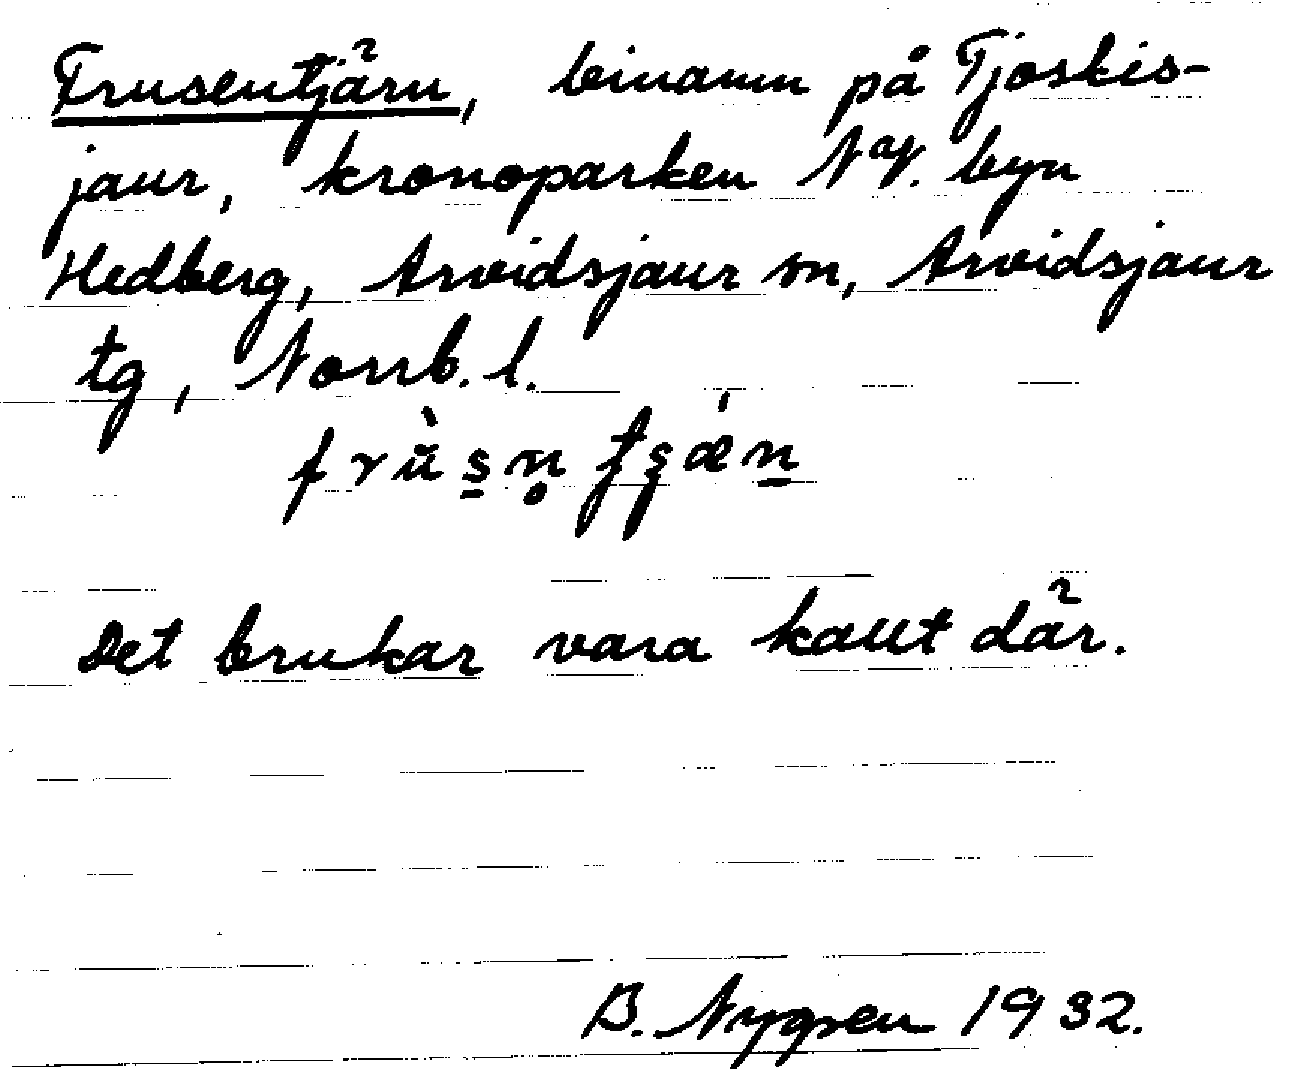 Frusentjärn, binamn på Tjoskis-
jaur, kronoparken N av. byn
Hedberg, Arvidsjaur sn, Arvidsjaur
tg, Norrb. l.
Det brukar vara kallt där.
B. Nygren 1932.